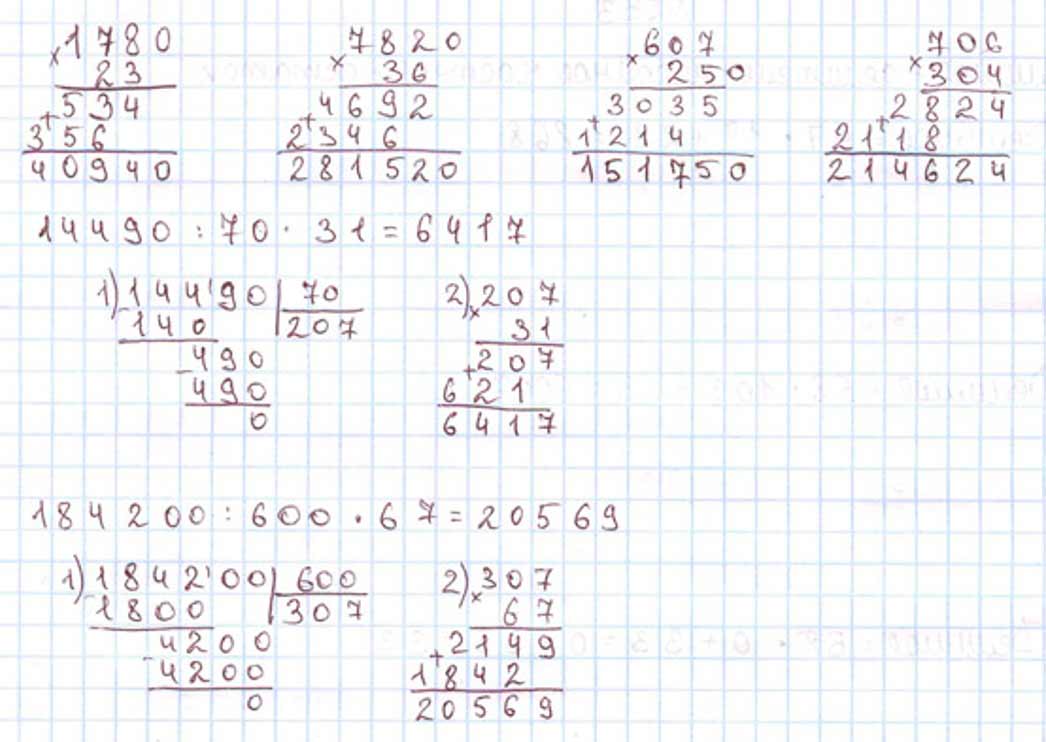 ×1780 ×7820 ×607 ×706
23 36 250 304
+534 +4692 +3035 +2824
356 2346 1214 2118
40940 281520 151750 214624
14490 : 70 · 31 = 6417
1) 144'90 | 70 2) ×207
-140 | 207 31
490 +207
-490 621
0 6417
184200 : 600 · 67 = 20569
1) 1842'00 | 600 2) ×307
-1800 | 307 67
4200 +2149
-4200 1842
0 20569